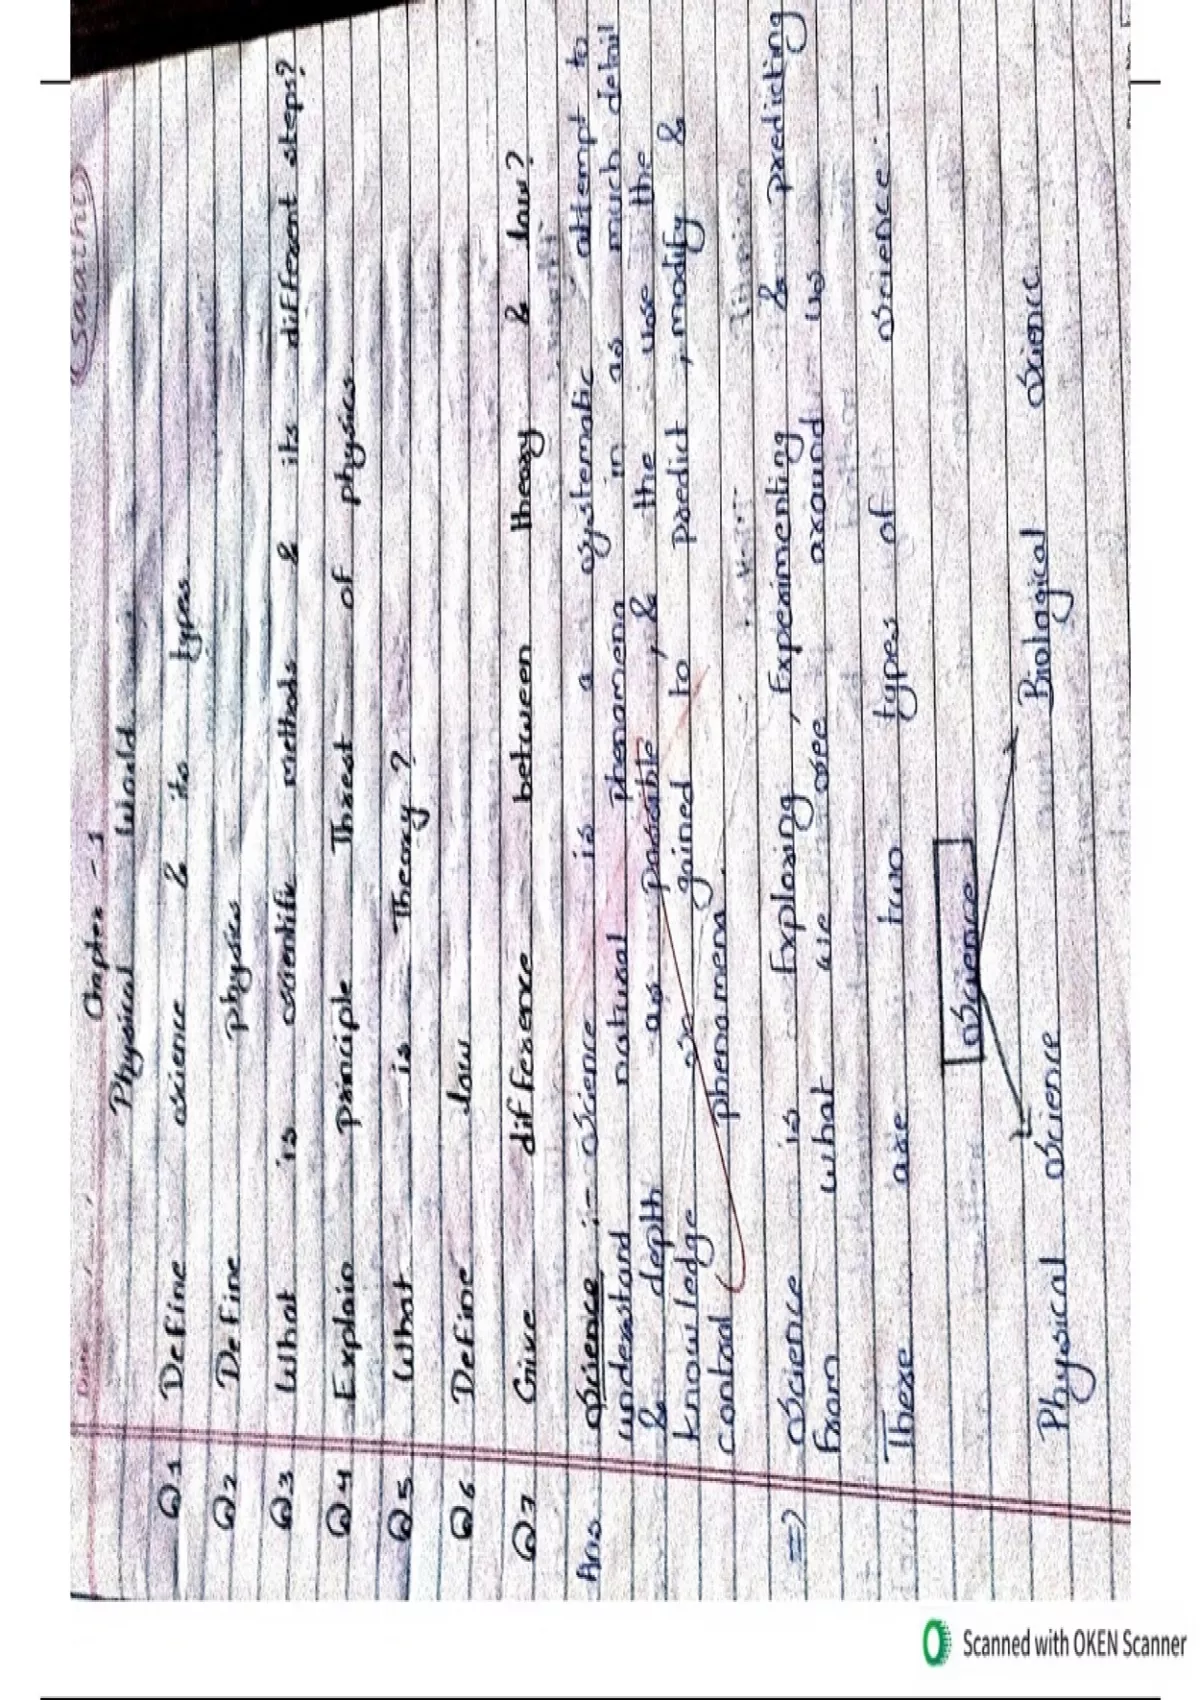 Saathi
Date
Chapter - 1
Physical World
Q1 Define science & its types
Q2 Define physics
Q3 What is scientific methods & its different steps?
Q4 Explain principle Threst of physics
Q5 What is Theory?
Q6 Define law
Q7 Give difference between theory & law?
Ans science :- science is a systematic attempt to
understand natural phenomena in as much detail
& depth as possible, & the use the
knowledge so gained to predict, modify &
control phenomena.
=) science is Exploring, Experimenting & predicting
from what we see around us.
There are two types of science :-
science
Physical science Biological science
Scanned with OKEN Scanner